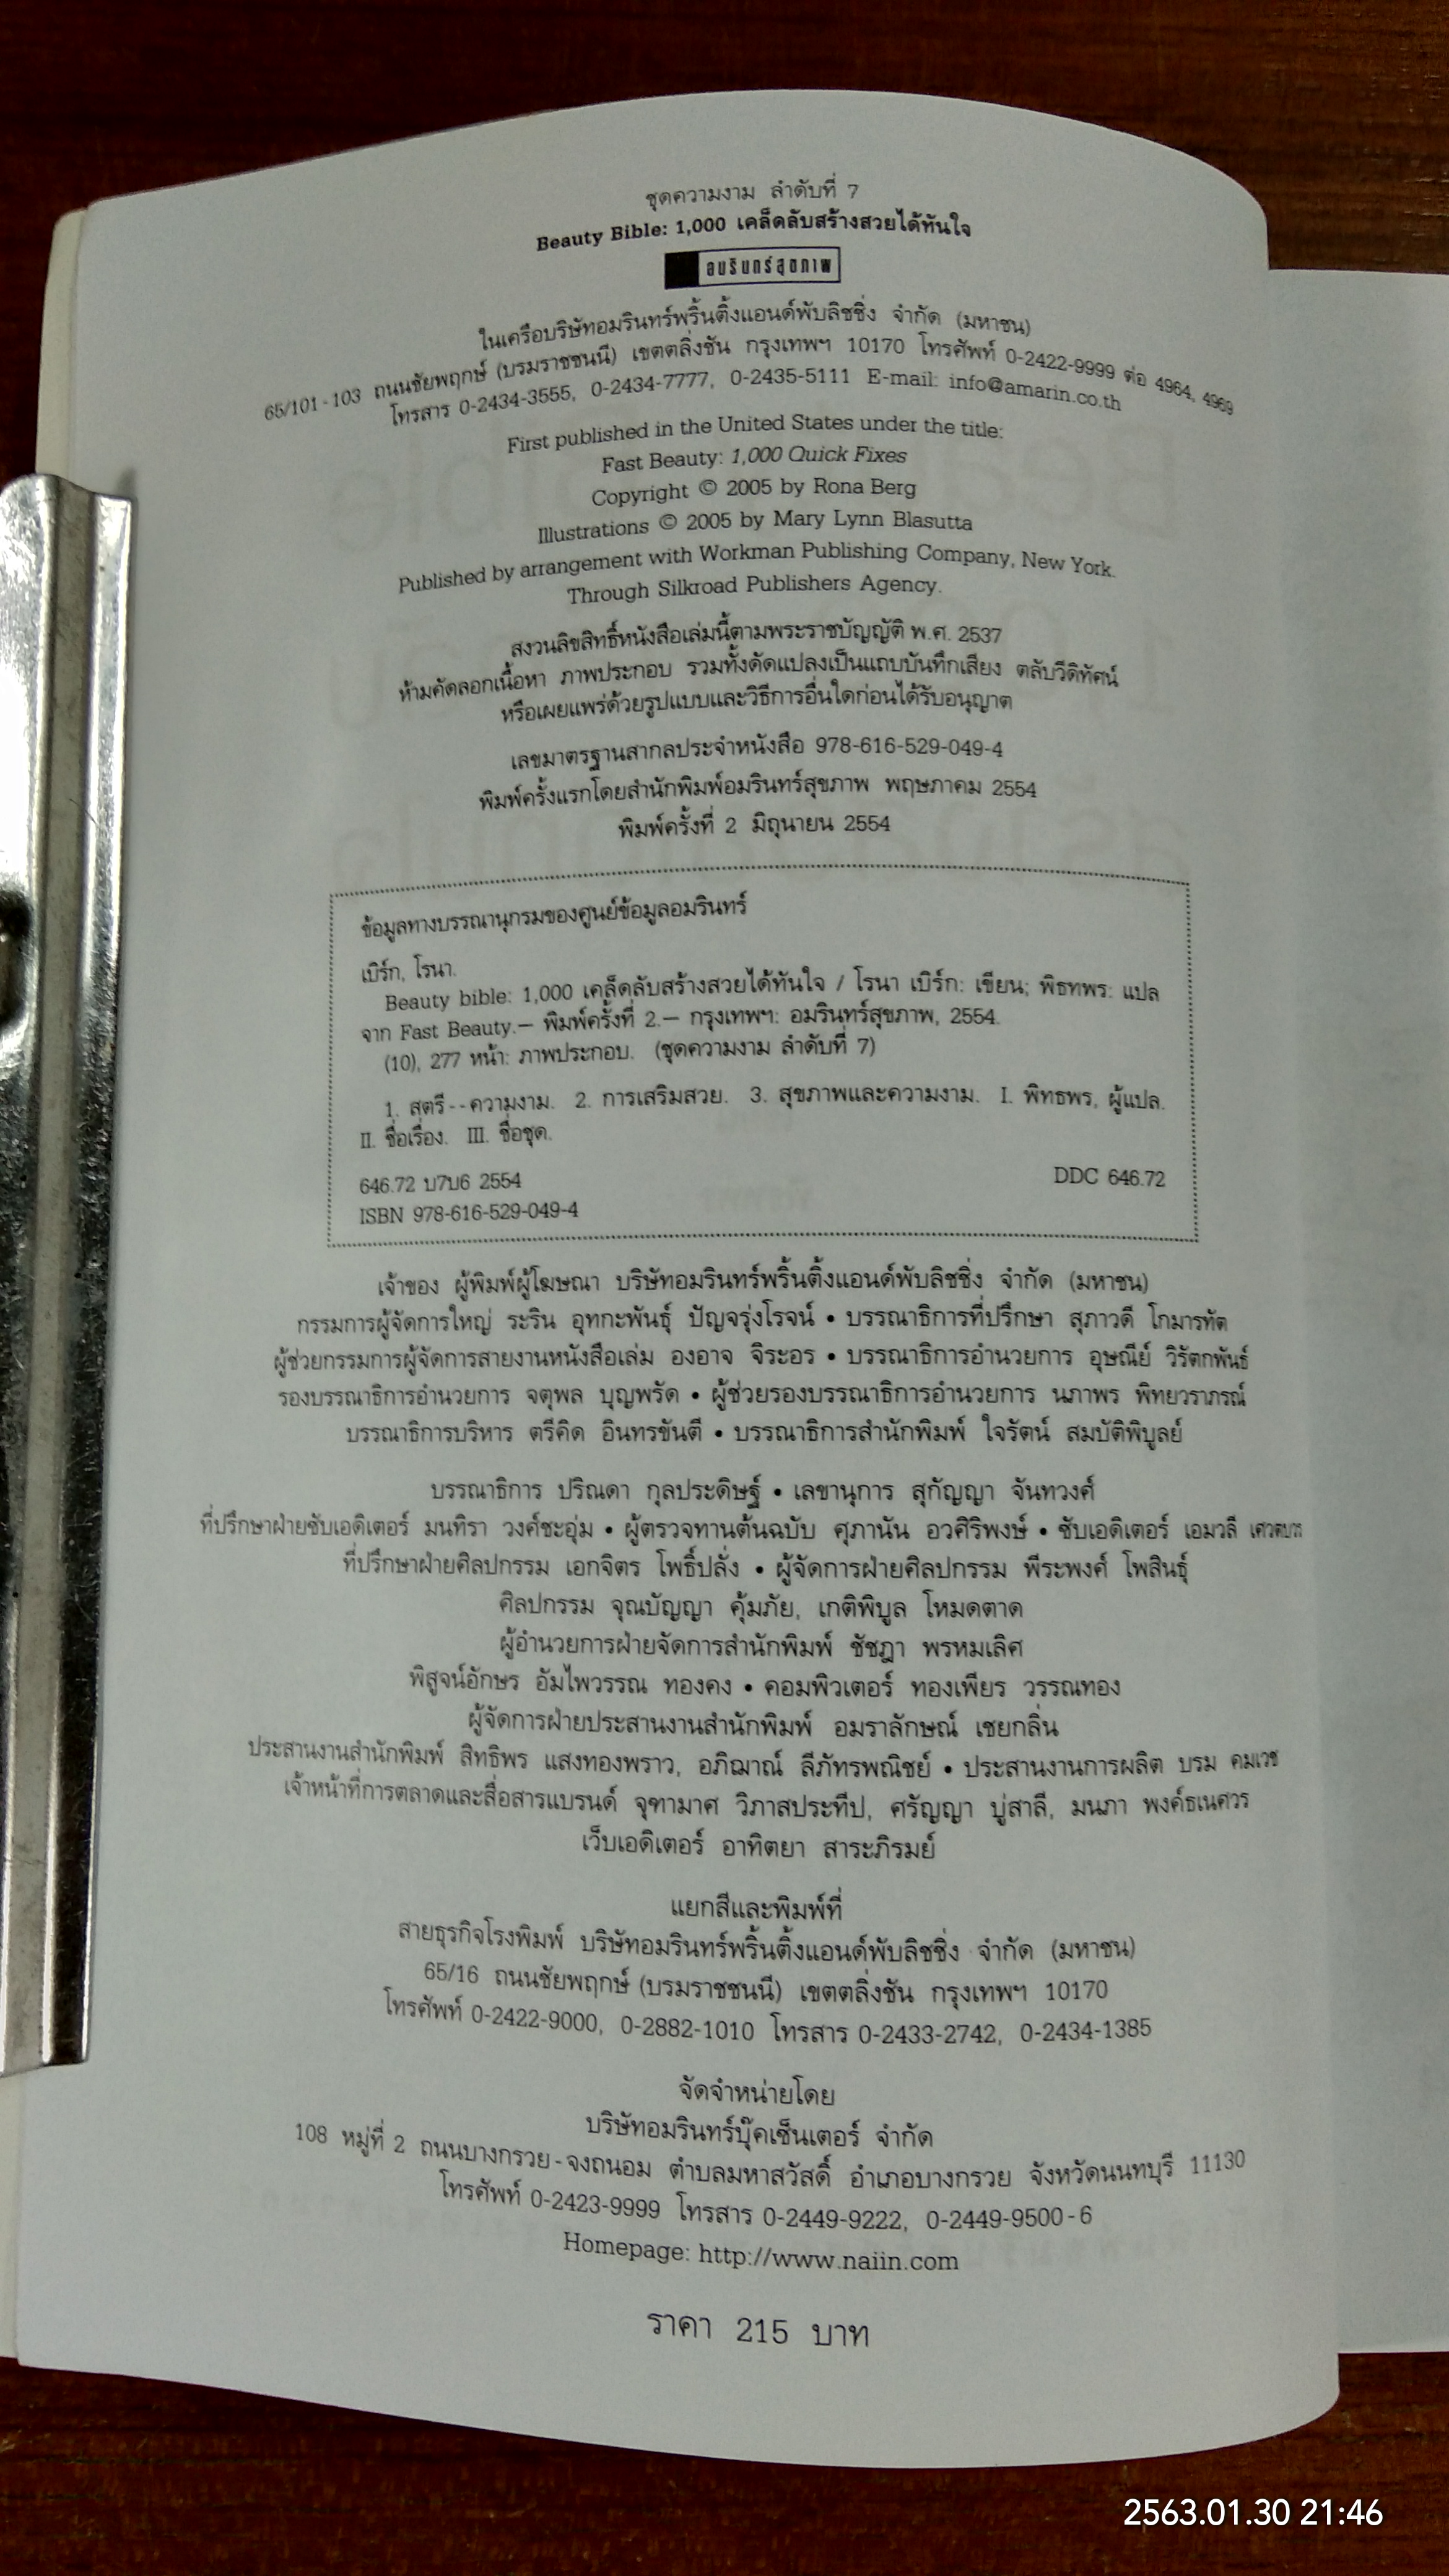 ชุดความงาม ลำดับที่ 7
Beauty Bible: 1,000 เคล็ดลับสร้างสวยได้ทันใจ
อมรินทร์สุขภาพ
ในเครือบริษัทอมรินทร์พริ้นติ้งแอนด์พับลิชชิ่ง จำกัด (มหาชน)
65/101-103 ถนนชัยพฤกษ์ (บรมราชชนนี) เขตตลิ่งชัน กรุงเทพฯ 10170 โทรศัพท์ 0-2422-9999 ต่อ 4964, 4969
โทรสาร 0-2434-3555, 0-2434-7777, 0-2435-5111 E-mail: info@amarin.co.th
First published in the United States under the title:
Fast Beauty: 1,000 Quick Fixes
Copyright © 2005 by Rona Berg
Illustrations © 2005 by Mary Lynn Blasutta
Published by arrangement with Workman Publishing Company, New York.
Through Silkroad Publishers Agency.
สงวนลิขสิทธิ์หนังสือเล่มนี้ตามพระราชบัญญัติ พ.ศ. 2537
ห้ามคัดลอกเนื้อหา ภาพประกอบ รวมทั้งดัดแปลงเป็นแถบบันทึกเสียง ตลับวีดิทัศน์
หรือเผยแพร่ด้วยรูปแบบและวิธีการอื่นใดก่อนได้รับอนุญาต
เลขมาตรฐานสากลประจำหนังสือ 978-616-529-049-4
พิมพ์ครั้งแรกโดยสำนักพิมพ์อมรินทร์สุขภาพ พฤษภาคม 2554
พิมพ์ครั้งที่ 2 มิถุนายน 2554
ข้อมูลทางบรรณานุกรมของศูนย์ข้อมูลอมรินทร์
เบิร์ก, โรนา.
Beauty bible: 1,000 เคล็ดลับสร้างสวยได้ทันใจ / โรนา เบิร์ก: เขียน; พิธทพร: แปล
จาก Fast Beauty.— พิมพ์ครั้งที่ 2.— กรุงเทพฯ: อมรินทร์สุขภาพ, 2554.
(10), 277 หน้า: ภาพประกอบ. (ชุดความงาม ลำดับที่ 7)
1. สตรี--ความงาม. 2. การเสริมสวย. 3. สุขภาพและความงาม. I. พิทธพร, ผู้แปล.
II. ชื่อเรื่อง. III. ชื่อชุด.
646.72 บ7บ6 2554 DDC 646.72
ISBN 978-616-529-049-4
เจ้าของ ผู้พิมพ์ผู้โฆษณา บริษัทอมรินทร์พริ้นติ้งแอนด์พับลิชชิ่ง จำกัด (มหาชน)
กรรมการผู้จัดการใหญ่ ระริน อุทกะพันธุ์ ปัญจรุ่งโรจน์ • บรรณาธิการที่ปรึกษา สุภาวดี โกมารทัต
ผู้ช่วยกรรมการผู้จัดการสายงานหนังสือเล่ม องอาจ จิระอร • บรรณาธิการอำนวยการ อุษณีย์ วิรัตกพันธ์
รองบรรณาธิการอำนวยการ จตุพล บุญพรัด • ผู้ช่วยรองบรรณาธิการอำนวยการ นภาพร พิทยวราภรณ์
บรรณาธิการบริหาร ตรีคิด อินทรขันตี • บรรณาธิการสำนักพิมพ์ ใจรัตน์ สมบัติพิบูลย์
บรรณาธิการ ปริณดา กุลประดิษฐ์ • เลขานุการ สุกัญญา จันทวงศ์
ที่ปรึกษาฝ่ายซับเอดิเตอร์ มนทิรา วงศ์ชะอุ่ม • ผู้ตรวจทานต้นฉบับ ศุภานัน อวศิริพงษ์ • ซับเอดิเตอร์ เอมวลี
ที่ปรึกษาฝ่ายศิลปกรรม เอกจิตร โพธิ์ปลั่ง • ผู้จัดการฝ่ายศิลปกรรม พีระพงศ์ โพสินธุ์
ศิลปกรรม จุณบัญญา คุ้มภัย, เกติพิบูล โหมดตาด
ผู้อำนวยการฝ่ายจัดการสำนักพิมพ์ ชัชฎา พรหมเลิศ
พิสูจน์อักษร อัมไพวรรณ ทองคง • คอมพิวเตอร์ ทองเพียร วรรณทอง
ผู้จัดการฝ่ายประสานงานสำนักพิมพ์ อมราลักษณ์ เชยกลิ่น
ประสานงานสำนักพิมพ์ สิทธิพร แสงทองพราว, อภิฌาณ์ ลีภัทรพณิชย์ • ประสานงานการผลิต บรม คมเวช
เจ้าหน้าที่การตลาดและสื่อสารแบรนด์ จุฑามาศ วิภาสประทีป, ศรัญญา บู่สาลี, มนภา พงศ์ธเนศวร
เว็บเอดิเตอร์ อาทิตยา สาระภิรมย์
แยกสีและพิมพ์ที่
สายธุรกิจโรงพิมพ์ บริษัทอมรินทร์พริ้นติ้งแอนด์พับลิชชิ่ง จำกัด (มหาชน)
65/16 ถนนชัยพฤกษ์ (บรมราชชนนี) เขตตลิ่งชัน กรุงเทพฯ 10170
โทรศัพท์ 0-2422-9000, 0-2882-1010 โทรสาร 0-2433-2742, 0-2434-1385
จัดจำหน่ายโดย
บริษัทอมรินทร์บุ๊คเซ็นเตอร์ จำกัด
108 หมู่ที่ 2 ถนนบางกรวย-จงถนอม ตำบลมหาสวัสดิ์ อำเภอบางกรวย จังหวัดนนทบุรี 11130
โทรศัพท์ 0-2423-9999 โทรสาร 0-2449-9222, 0-2449-9500-6
Homepage: http://www.naiin.com
ราคา 215 บาท
2563.01.30 21:46